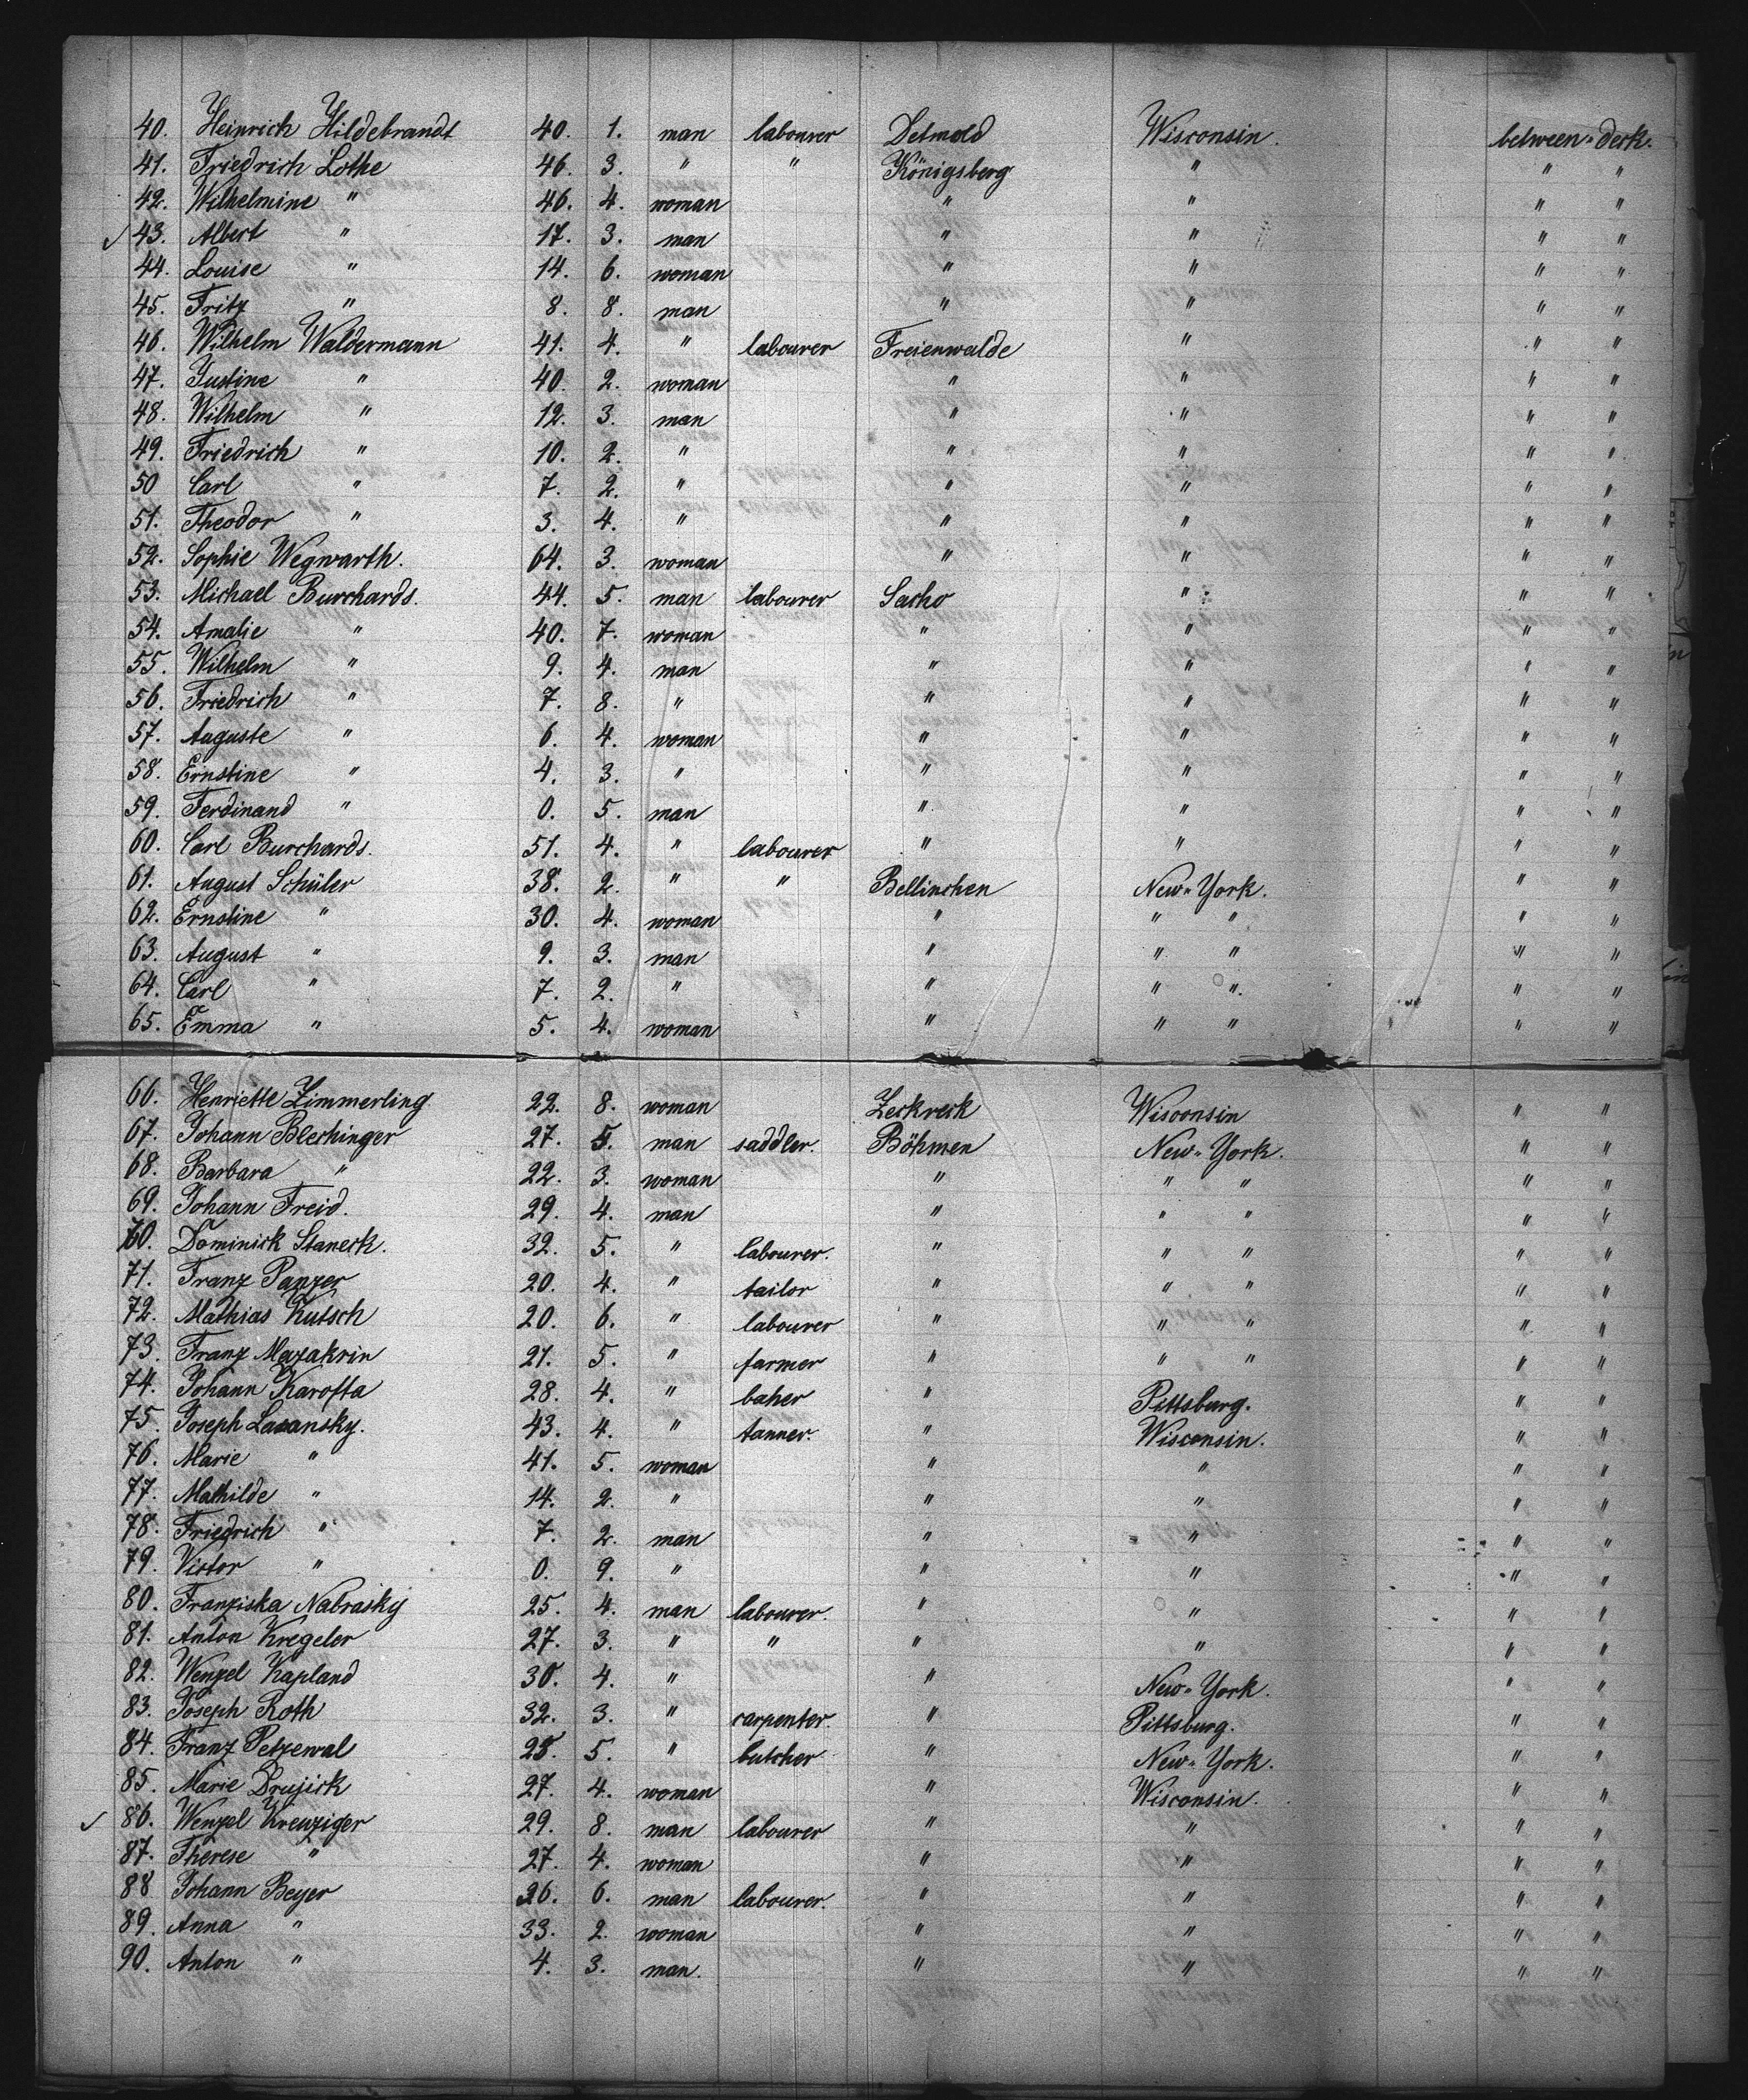 40. Heinrich Hildebrandt 40. 1. man labourer Detmold Wisconsin. between-deck.
41. Friedrich Lothe 46. 3. " " Königsberg " " "
42. Wilhelmine " 46. 4. woman " " " "
43. Albert " 17. 3. man " " " "
44. Louise " 14. 6. woman " " " "
45. Fritz " 8. 8. man " " " "
46. Wilhelm Waldermann 41. 4. " labourer Freienwalde " " "
47. Justine " 40. 2. woman " " " "
48. Wilhelm " 12. 3. man " " " "
49. Friedrich " 10. 2. " " " " "
50 Carl " 7. 2. " " " " "
51. Theodor " 3. 4. " " " " "
52. Sophie Wegwarth. 64. 3. woman " " " "
53. Michael Burchards. 44. 5. man labourer Sacho " " "
54. Amalie " 40. 7. woman " " " "
55. Wilhelm " 9. 4. man " " " "
56. Friedrich " 7. 8. " " " " "
57. Auguste " 6. 4. woman " " " "
58. Ernstine " 4. 3. " " " " "
59. Ferdinand " 0. 5. man " " " "
60. Carl Burchards. 51. 4. " labourer " " " "
61. August Schüler 38. 2. " " Bellinchen New-York. " "
62. Ernstine " 30. 4. woman " " " " "
63. August " 9. 3. man " " " " "
64. Carl " 7. 2. " " " " " "
65. Emma " 5. 4. woman " " " " "
66. Henriette Zimmerling 22. 8. woman Zeckreck Wisconsin " "
67. Johann Blechinger 27. 5. man saddler. Böhmen New-York. " "
68. Barbara " 22. 3. woman " " " " "
69. Johann Freid. 29. 4. man " " " " "
70. Dominick Staneck. 32. 5. " labourer. " " " " "
71. Franz Panzer 20. 4. " tailor " " " " "
72. Mathias Kutsch 20. 6. " labourer " " " " "
73. Franz Mazakrin 21. 5. " farmer " " " " "
74. Johann Karofta 28. 4. " baher " Pittsburg. " "
75. Joseph Lasansky. 43. 4. " tanner. " Wisconsin. " "
76. Marie " 41. 5. woman " " " "
77. Mathilde " 14. 2. " " " " "
78. Friedrich " 7. 2. man " " " "
79. Victor " 0. 9. " " " " "
80. Franziska Nabrasky 25. 4. man labourer. " " " "
81. Anton Kregeler 27. 3. " " " " " "
82. Wenzel Kapland 30. 4. " " New-York. " "
83. Joseph Roth 32. 3. " carpenter. " Pittsburg. " "
84. Franz Petzewal 25. 5. " butcher " New-York. " "
85. Marie Drujick 27. 4. woman " Wisconsin. " "
86. Wenzel Kreuziger 29. 8. man labourer " " " "
87. Therese " 27. 4. woman " " " "
88 Johann Beyer 26. 6. man labourer. " " " "
89. Anna " 33. 2. woman " " " "
90. Anton " 4. 3. man. " " " "